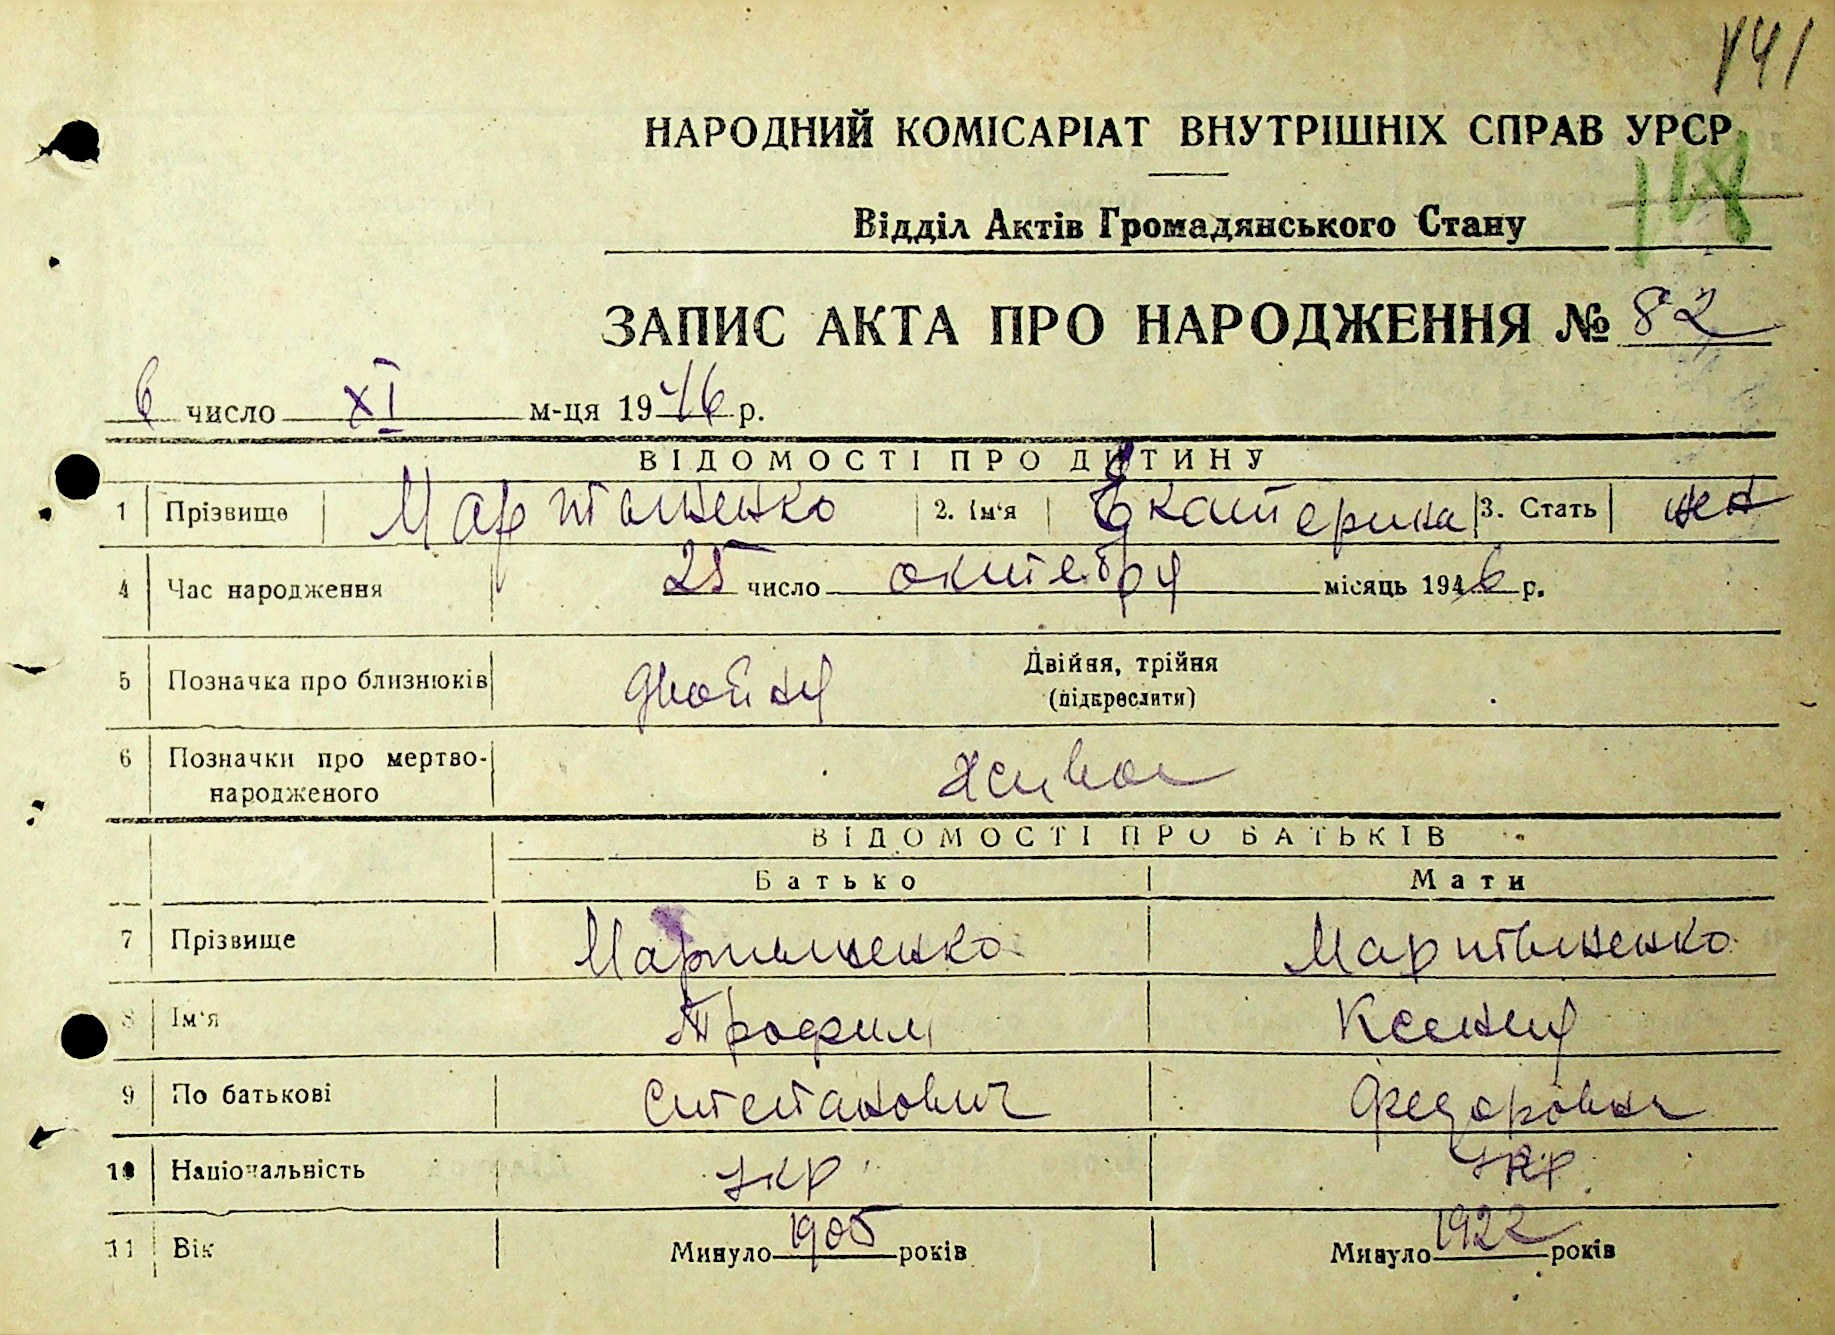 141
НАРОДНИЙ КОМІСАРІАТ ВНУТРІШНІХ СПРАВ УРСР
118
Відділ Актів Громадянського Стану
ЗАПИС АКТА ПРО НАРОДЖЕННЯ № 82
6 число XI м-ця 1946 р.
ВІДОМОСТІ ПРО ДИТИНУ
1 Прізвище Мартыненко 2. Ім'я Екатерина 3. Стать жен
4 Час народження 25 число октября місяць 1946 р.
5 Позначка про близнюків двойня Двійня, трійня
(підкреслити)
6 Позначки про мертво-
народженого живая
ВІДОМОСТІ ПРО БАТЬКІВ
Батько Мати
7 Прізвище Мартыненко Мартыненко
8 Ім'я Трофим Ксения
9 По батькові Степанович Федоровна
10 Національність укр укр
11 Вік Минуло 1905 років Минуло 1922 років